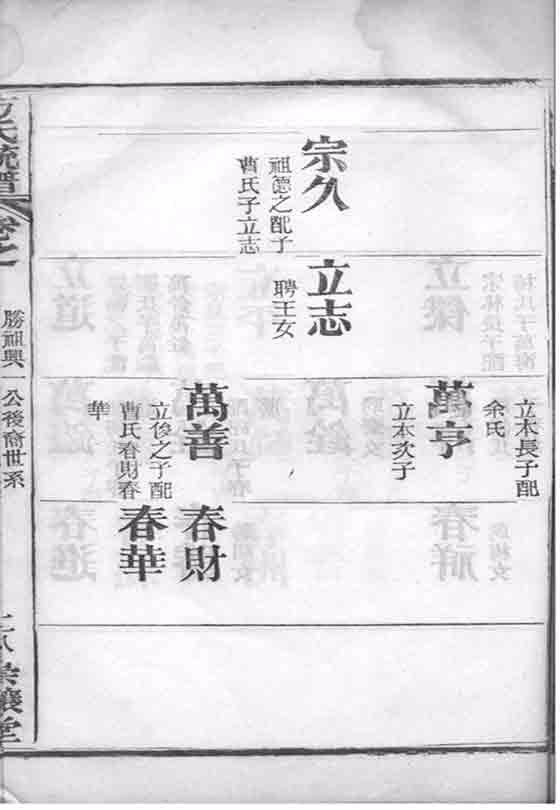 宗久
祖德之配子
曹氏子立志
立志
聘王女
立木長子配
余氏
萬亨
立本次子
萬善
立俊之子配
曹氏春財春
華
春財
春華
方氏統譜
卷之一
勝祖興
公後裔世系